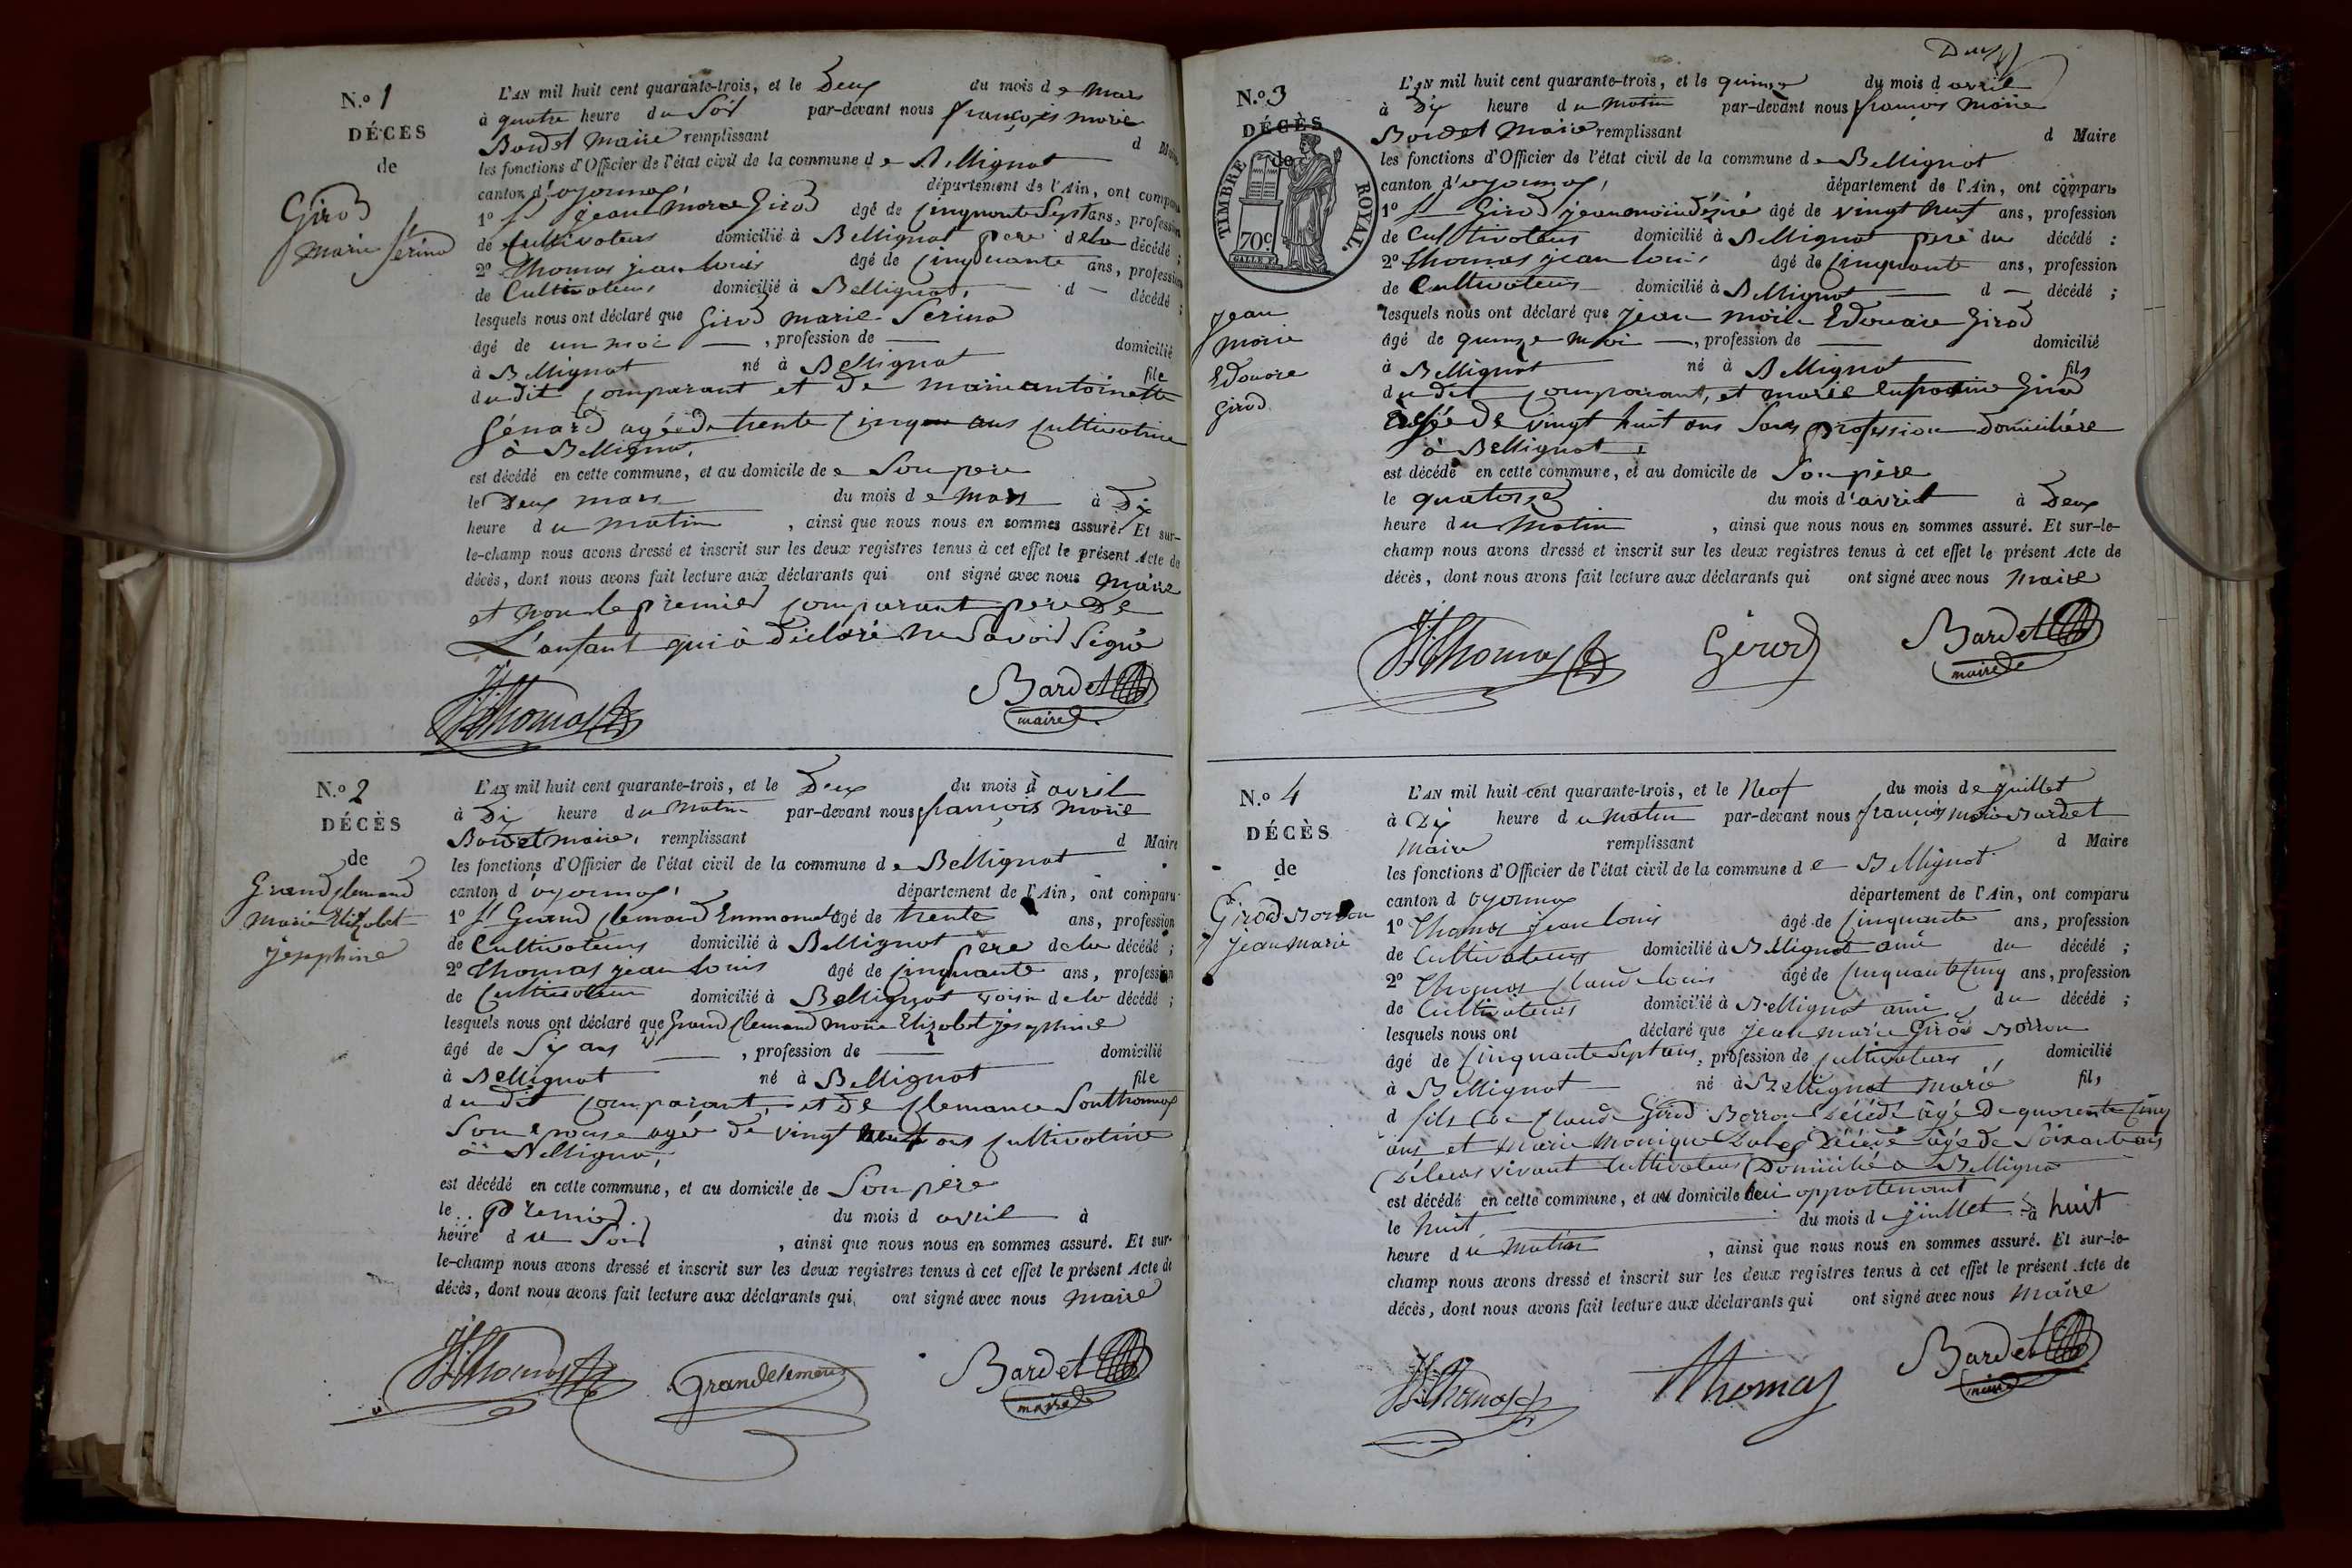 N.o 1
DÉCÈS
de
Girod
Marie Sérina
L'AN mil huit cent quarante-trois, et le Deux du mois de Mars
à quatre heure du Soir par-devant nous françois marie
Bardet Maire remplissant d Maire
les fonctions d'Officier de l'état civil de la commune de Bellignat
canton d'oyonnax, département de l'Ain, ont comparu
1° Sr jean Marie Girod âgé de Cinquante Sept ans, profession
de Cultivateur domicilié à Bellignat pere dela décédé ;
2° Thomas jean louis âgé de Cinquante ans, profession
de Cultivateur domicilié à Bellignat, d décédé ;
lesquels nous ont déclaré que Girod marie Serina
âgé de un moi , profession de domicilié
à Bellignat né à Bellignat file
du dit Comparant et de marie antoinette
Génard agée de trente Cinq ans Cultivatrice
à Bellignat,
est décédé en cette commune, et au domicile de Son pere
le Deux mars du mois de Mars à Dix
heure du matin , ainsi que nous nous en sommes assuré. Et sur-
le-champ nous avons dressé et inscrit sur les deux registres tenus à cet effet le présent Acte de
décès, dont nous avons fait lecture aux déclarants qui ont signé avec nous Maire
et non le premier Comparant pere De
L'anfant qui à déclaré ne Savoir Signé
Thomas Bardet
maire
N.o 2
DÉCÈS
de
Grand Clemand
Marie Elizabet
josephine
L'AN mil huit cent quarante-trois, et le Deux du mois d avril
à Dix heure du Matin par-devant nous françois Marie
Bardet maire, remplissant d Maire
les fonctions d'Officier de l'état civil de la commune de Bellignat
canton d oyonnax, département de l'Ain, ont comparu
1° Sr Grand Clemand Emmanuel âgé de trente ans, profession
de Cultivateur domicilié à Bellignat père dela décédé ;
2° Thomas jean louis âgé de Cinquante ans, profession
de Cultivateur domicilié à Bellignat voisin dela décédé ;
lesquels nous ont déclaré que Grand Clemand Marie Elizabet josephine
âgé de Six ans , profession de domicilié
à Bellignat né à Bellignat file
du dit Comparant, et de Clemance Sonthonnax
Son Epouse agée de vingt neuf ans Cultivatrice
à Bellignat,
est décédé en cette commune, et au domicile de Son père
le premier du mois d avril à
heure du Soir , ainsi que nous nous en sommes assuré. Et sur-
le-champ nous avons dressé et inscrit sur les deux registres tenus à cet effet le présent Acte de
décès, dont nous avons fait lecture aux déclarants qui ont signé avec nous Maire
Thomas Grandclement Bardet
maire
Deux
N.o 3
DÉCÈS
de
TIMBRE ROYAL.
70c.
jean
marie
Edouare
Girod
L'AN mil huit cent quarante-trois, et le quinze du mois d avril
à Dix heure du Matin par-devant nous françois Marie
Bardet Maire remplissant d Maire
les fonctions d'Officier de l'état civil de la commune de Bellignat
canton d'oyonnax, département de l'Ain, ont comparu
1° Sr Girod jean marie désiré âgé de vingt Neuf ans, profession
de Cultivateur domicilié à Bellignat pere du décédé ;
2° Thomas jean louis âgé de Cinquante ans, profession
de Cultivateur domicilié à Bellignat d décédé ;
lesquels nous ont déclaré que jean Marie Edouare Girod
âgé de quinze Moi , profession de domicilié
à Bellignat né à Bellignat fils
du dit Comparant, et marie Girod
agée De vingt huit ans Sans profession Domicilière
à Bellignat
est décédé en cette commune, et au domicile de Son père
le quatorze du mois d'avril à Deux
heure du Matin , ainsi que nous nous en sommes assuré. Et sur-le-
champ nous avons dressé et inscrit sur les deux registres tenus à cet effet le présent Acte de
décès, dont nous avons fait lecture aux déclarants qui ont signé avec nous Maire
Thomas Girod Bardet
maire
N.o 4
DÉCÈS
de
Girod Borron
jean Marie
L'AN mil huit cent quarante-trois, et le Neuf du mois de juillet
à Dix heure du Matin par-devant nous françois Marie Bardet
Maire remplissant d Maire
les fonctions d'Officier de l'état civil de la commune de Bellignat
canton d oyonnax département de l'Ain, ont comparu
1° Thomas jean louis âgé de Cinquante ans, profession
de Cultivateur domicilié à Bellignat ami du décédé ;
2° Thomas Claude louis âgé de Cinquante Cinq ans, profession
de Cultivateur domicilié à Bellignat ami du décédé ;
lesquels nous ont déclaré que jean marie Girod Borron
âgé de Cinquante Sept ans, profession de Cultivateur, domicilié
à Bellignat né à Bellignat Marié fils
d fils de Claude Girod Borron Décédé âgé De quarente Cinq
ans et Marie Monique Décédé agée de Soixante ans
De leurs vivant Cultivateur Domicilié a Bellignat
est décédé en cette commune, et au domicile lui appartenant
le huit du mois de juillet à huit
heure du Matin , ainsi que nous nous en sommes assuré. Et sur-le-
champ nous avons dressé et inscrit sur les deux registres tenus à cet effet le présent Acte de
décès, dont nous avons fait lecture aux déclarants qui ont signé avec nous Maire
Thomas Thomas Bardet
maire